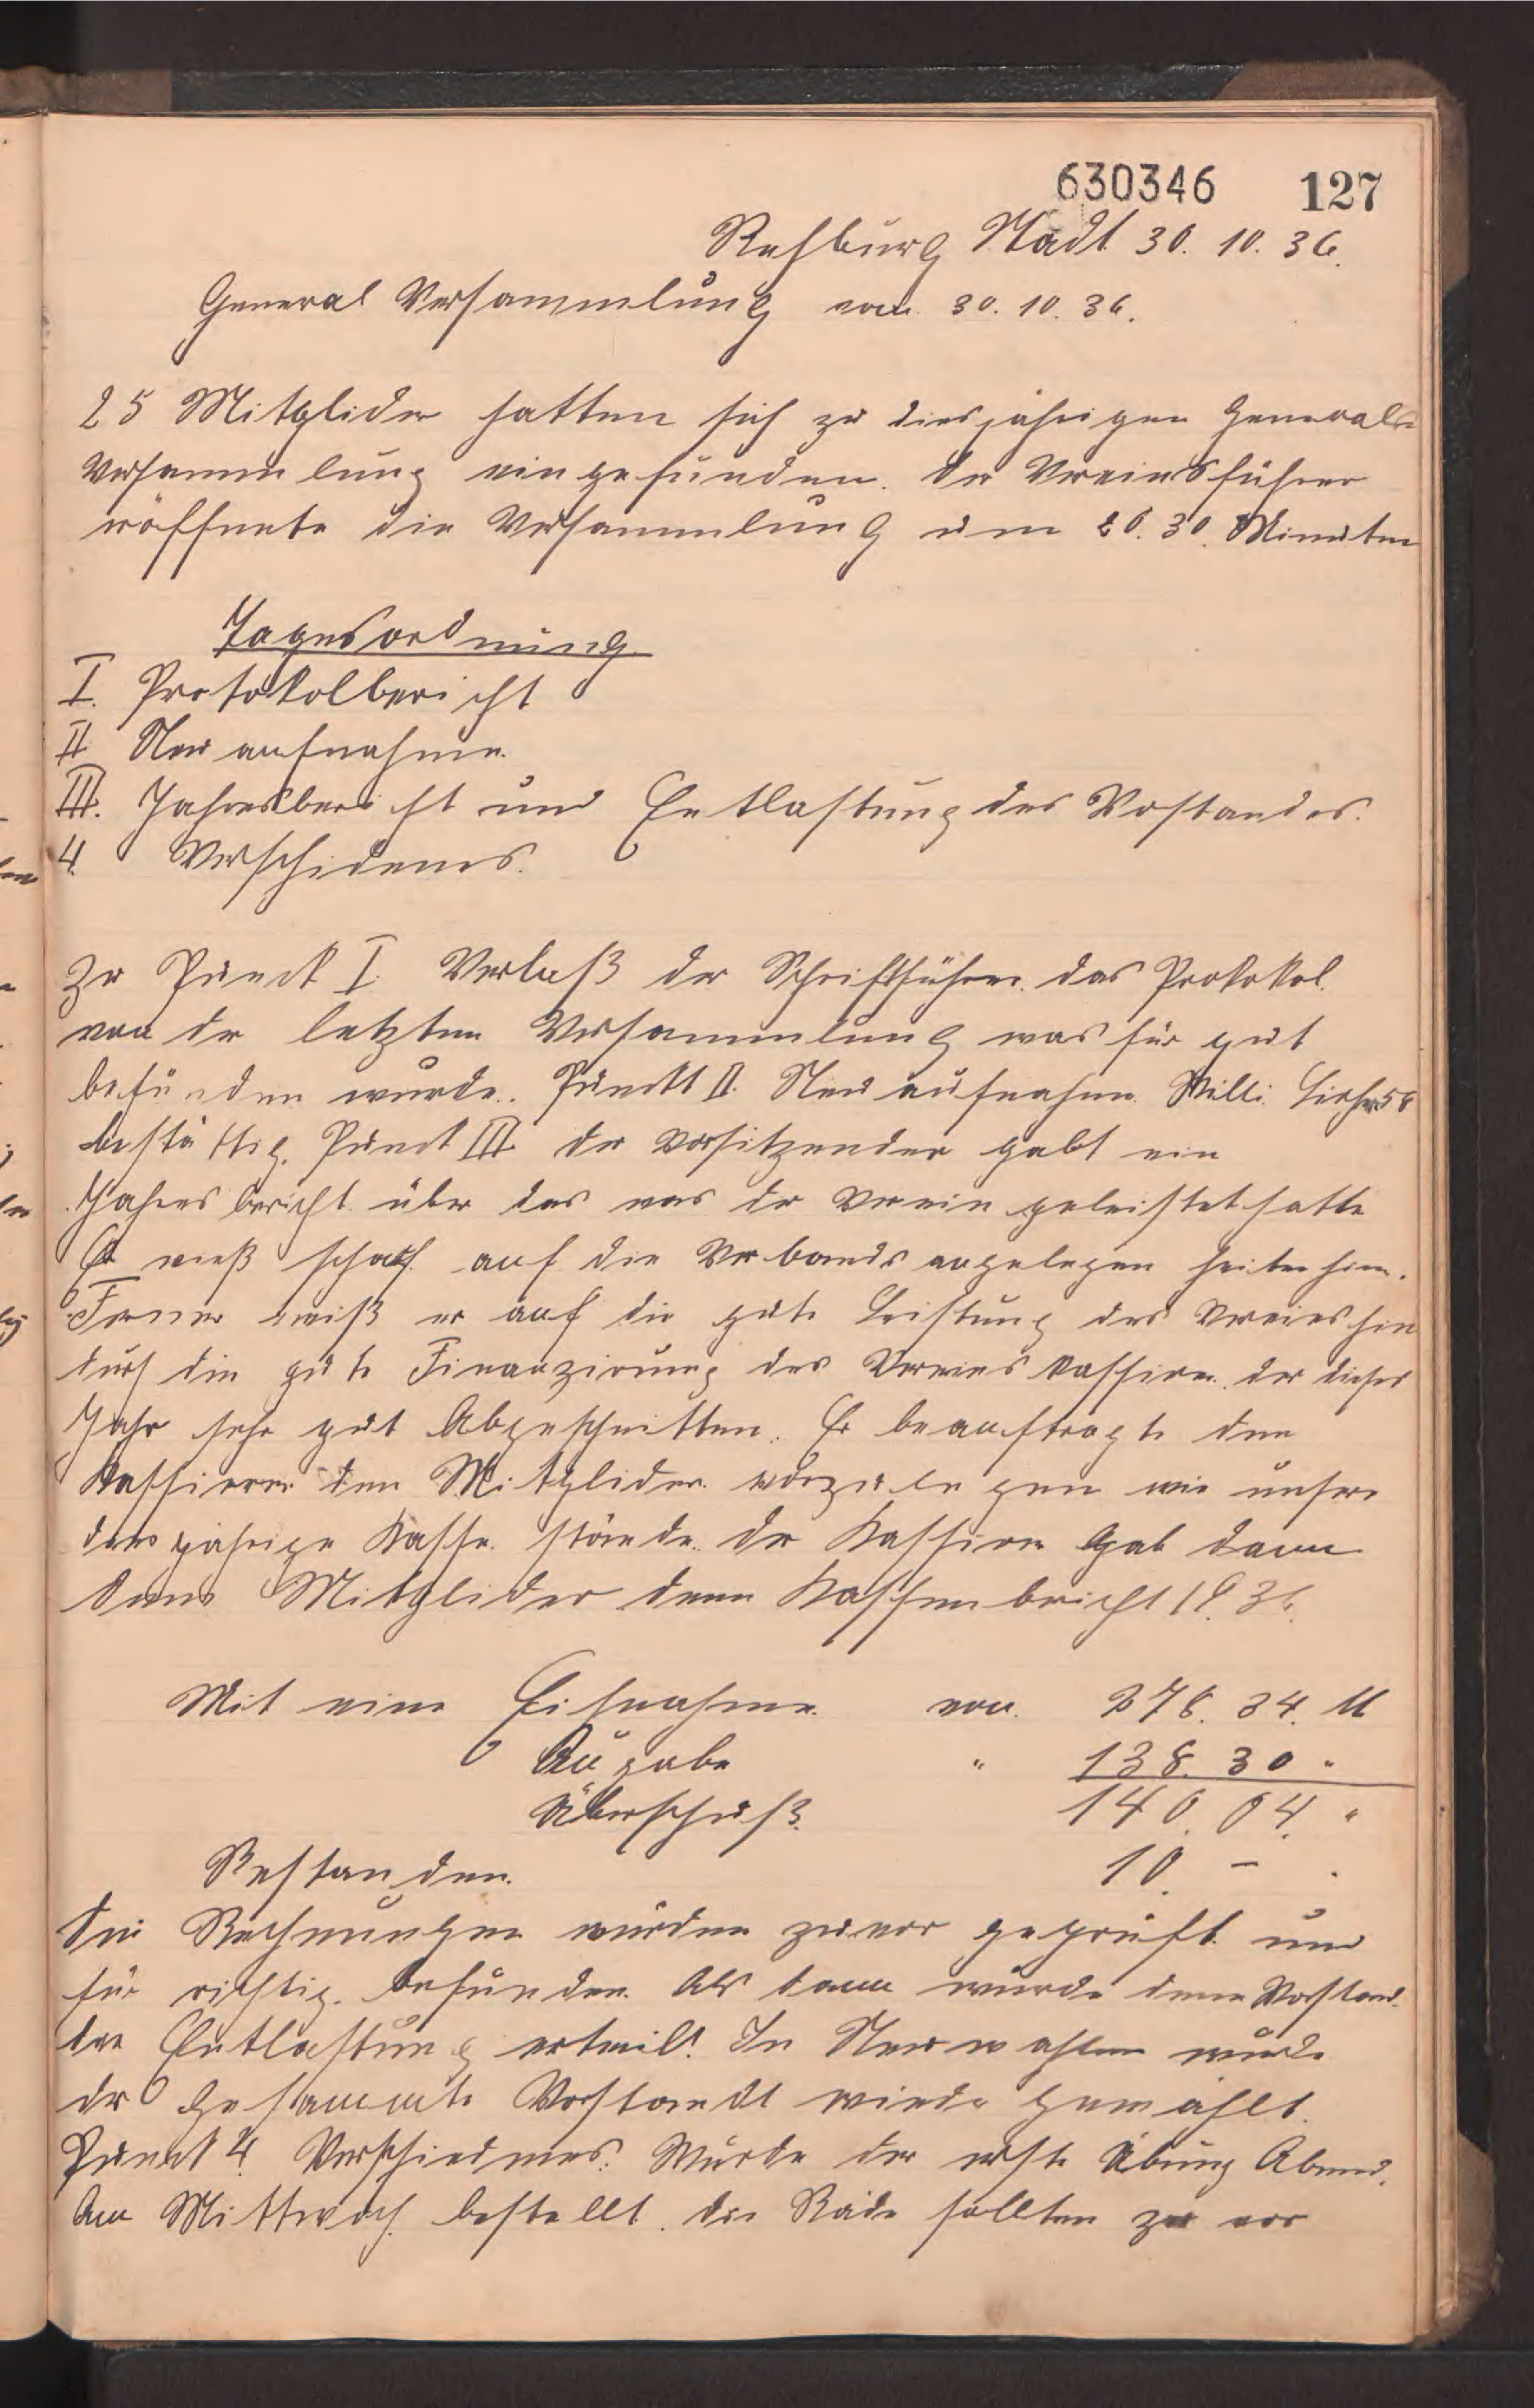 630346 127
Rehburg Stadt 30. 10. 36.
General Versammlung vom 30. 10. 36.
25 Mitglider hatten sich zu diesjährigen General
Versammlung eingefunden. Der Vereinsführer
eröffnete die Versammlung um 20. 30. Minuten
Tagesordnung
I. Protokolbericht
II Neu aufnahme.
III. Jahresbericht und Entlastung des Vorstandes.
4. Verschidenes.
Zu Punckt I. Verlaß der Schriftführer das Protokol.
von der letzten Versammlung was für gut
befunden wurde. Punckt II. Neu aufnahme Willi
bestättig. Punct III der Vorsitzender gabt ein
Jahres bericht über das was der Verein geleistet hatte
Er wieß scharf auf die Verbands angelegen heiten hin.
Ferner wieß er auf die gute Leistung des Vereins hin
durch die gute Finanzirung des Vereins kassirer der dieses
Jahr sehr gut Abgeschnitten. Er beauftragte den
Kassierer den Mitglider vorzulegen wie unsere
diesjährige Kasse stände. Der Kassirer Gab dann
dens Mitglider denn Kassenbericht 19.36.
Mit eine Einahme von 278. 34. M
Augabe " 138. 30 "
Überschuß. 140. 04. "
Restanden. 10. - .
Die Rechnungen wurden zuvor geprüft und
für richtig befunden. Als dann wurde denn Vorstand
die Entlastung erteilt. In Neuwahlen wurde
der Gesammte Vorstandt wieder gewählt.
Punckt 4. Verschiedenes. Wurde der erste Übung Abend.
Am Mittwoch bestellt. die Räder sollten zu vor